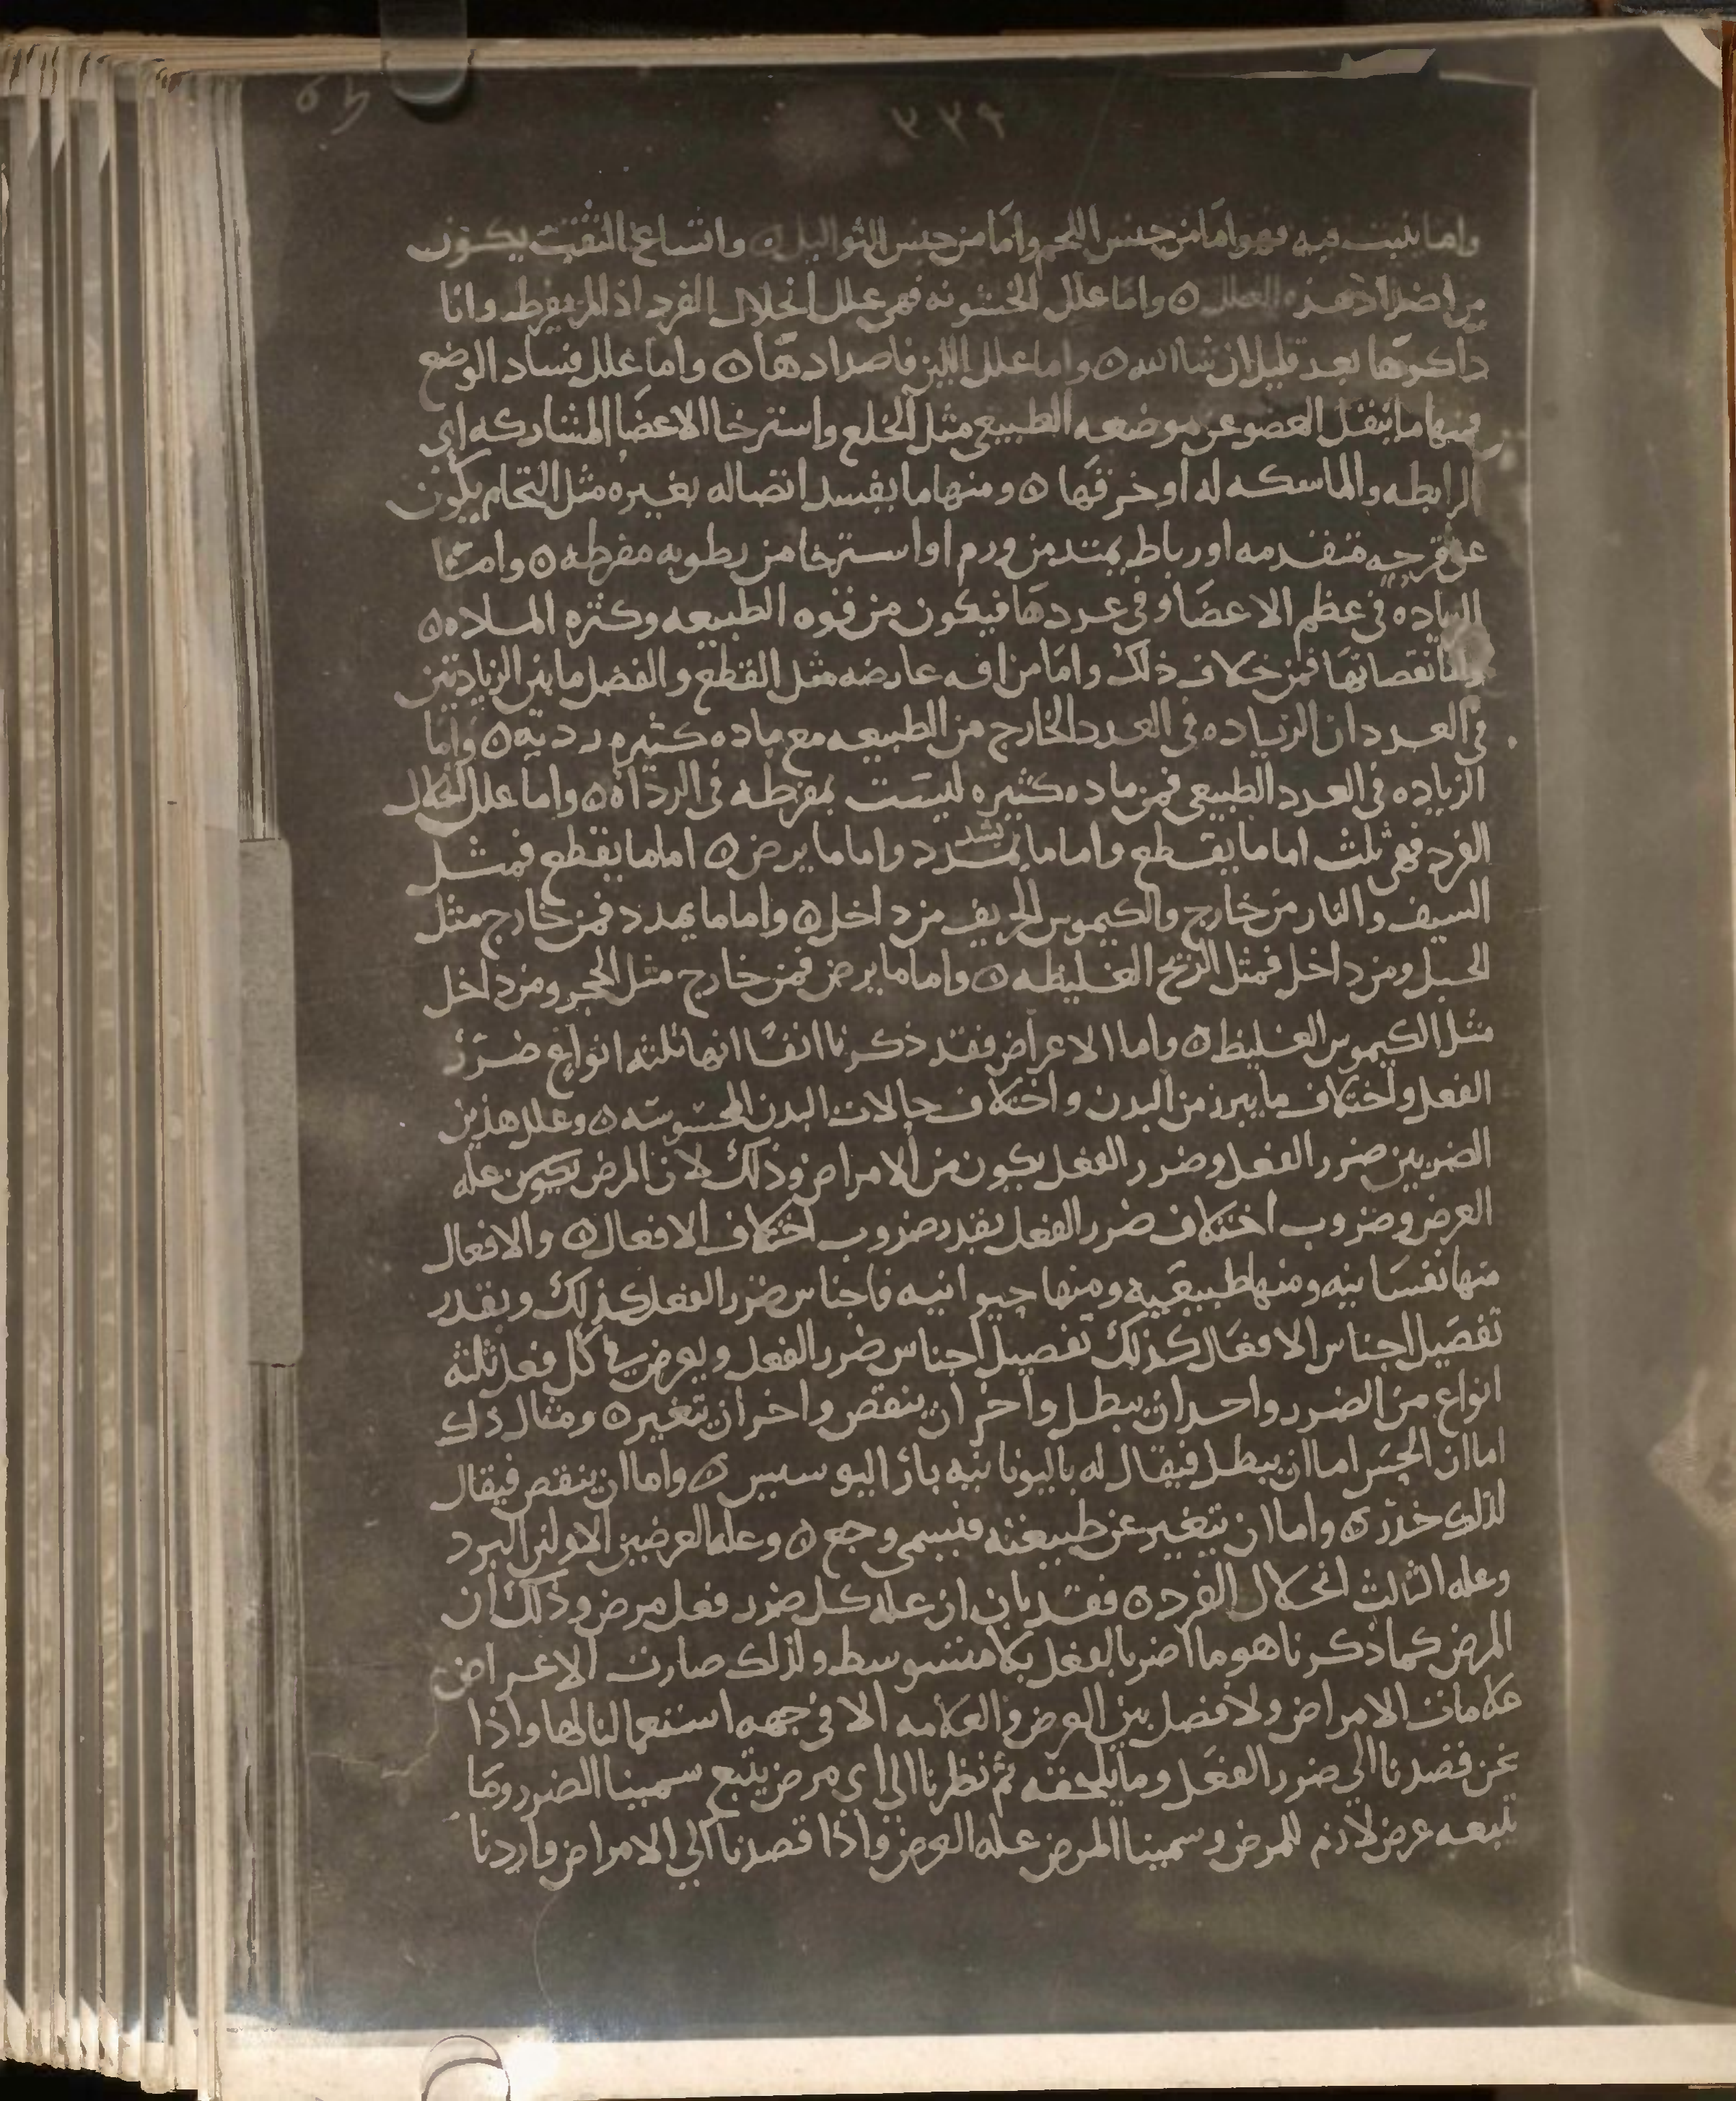 ٣٣٩
واما ينبت فيه فهو اما من جنس اللحم واما من جنس الثواليل ۞ واتساع الثقب يكون
من اضداد هذه العلل ۞ واما علل الخشونه فهى علل انحلال الفرد اذا لم يفرط وانا
ذاكرها بعد قليل ان شا الله ۞ واما علل اللين فاضدادها ۞ واما علل فساد الوضع
فمنها ما ينقل العضو عن موضعه الطبيعى مثل الخلع واسترخا الاعضا المشاركه اى
الرابطه والماسكه له او خرقها ۞ ومنها ما يفسد اتصاله بغيره مثل التحام يكون
عن قرحه متقدمه او رباط يمتد من ورم او استرخا من رطوبه مفرطه ۞ واما
الزياده فى عظم الاعضا وفى عددها فيكون من قوه الطبيعه وكثره الماده ۞
واما نقصانها فمن خلاف ذلك واما من افه عارضه مثل القطع والفصل ما بين الزيادتين
فى العدد ان الزياده فى العدد الخارج من الطبيعه مع ماده كثيره رديه ۞ واما
الزياده فى العدد الطبيعى فمن ماده كثيره ليست بمفرطه فى الرداه ۞ واما علل انحلال
الفرد فهى ثلث اما ما يقطع واما ما يمدد واما ما يرض ۞ اما ما يقطع فمثل
السيف والنار من خارج والكيموس الحريف من داخل ۞ واما ما يمدد فمن خارج مثل
الحبل ومن داخل فمثل الريح الغليظه ۞ واما ما يرض فمن خارج مثل الحجر ومن داخل
مثل الكيموس الغليظ ۞ واما الاعراض فقد ذكرنا انفا انها ثلثه انواع ضرر
الفعل واختلاف ما يبرز من البدن واختلاف حالات البدن المحسوسه ۞ وعلل هذين
الضربين ضرر الفعل وضرر الفعل يكون من الامراض وذلك لان المرض يكون عله
العرض وضروب اختلاف ضرر الفعل بقدر ضروب اختلاف الافعال ۞ والافعال
منها نفسانيه ومنها طبيعيه ومنها حيوانيه فاجناس ضرر الفعل كذلك وبقدر
تفصيل اجناس الافعال كذلك تفصيل اجناس ضرر الفعل ويعرض في كل فعل ثلثه
انواع من الضرر واحد ان يبطل واخر ان ينقص واخر ان يتغير ۞ ومثال ذلك
اما ان الحس اما ان يبطل فيقال له باليونانيه باراليوسيس ۞ واما ان ينقص فيقال
لذلك خدر ۞ واما ان يتغير عن طبيعته فيسمى وجع ۞ وعله العرضين الاولين البرد
وعله الثالث انحلال الفرد ۞ فقد بان ان عله كل ضرر فعل مرض وذلك ان
المرض كما ذكرنا هو ما اضر بالفعل بلا متوسط ولذلك صارت الاعراض
علامات الامراض ولا فصل بين العرض والعلامه الا فى جهه استعمالنا لها واذا
نحن قصدنا الي ضرر الفعل وما يلحقه ثم نظرنا الي اى مرض يتبع سمينا الضرر وما
يتبعه عرض لازم للمرض وسمينا المرض عله العرض واذا قصدنا الي الامراض واردنا